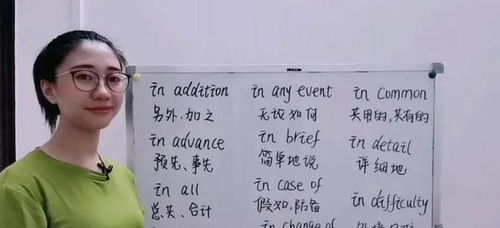 in addition
另外,加之
in any event
无论如何
in common
共用的,共有的
in advance
预先、事先
in brief
简单地说
in detail
详细地
in all
总共、合计
in case of
假如,防备
in difficulty
in change of